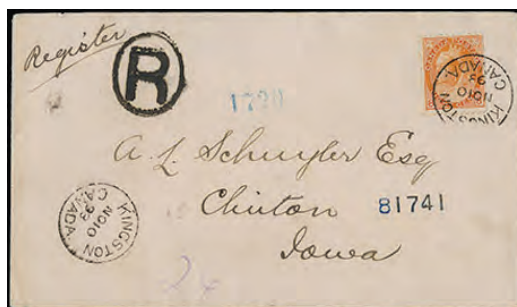 Register
R
1720
KINGSTON
NO 10
93
CANADA
A. L. Schuyler Esq
Clinton
81741
Iowa
KINGSTON
NO 10
93
CANADA